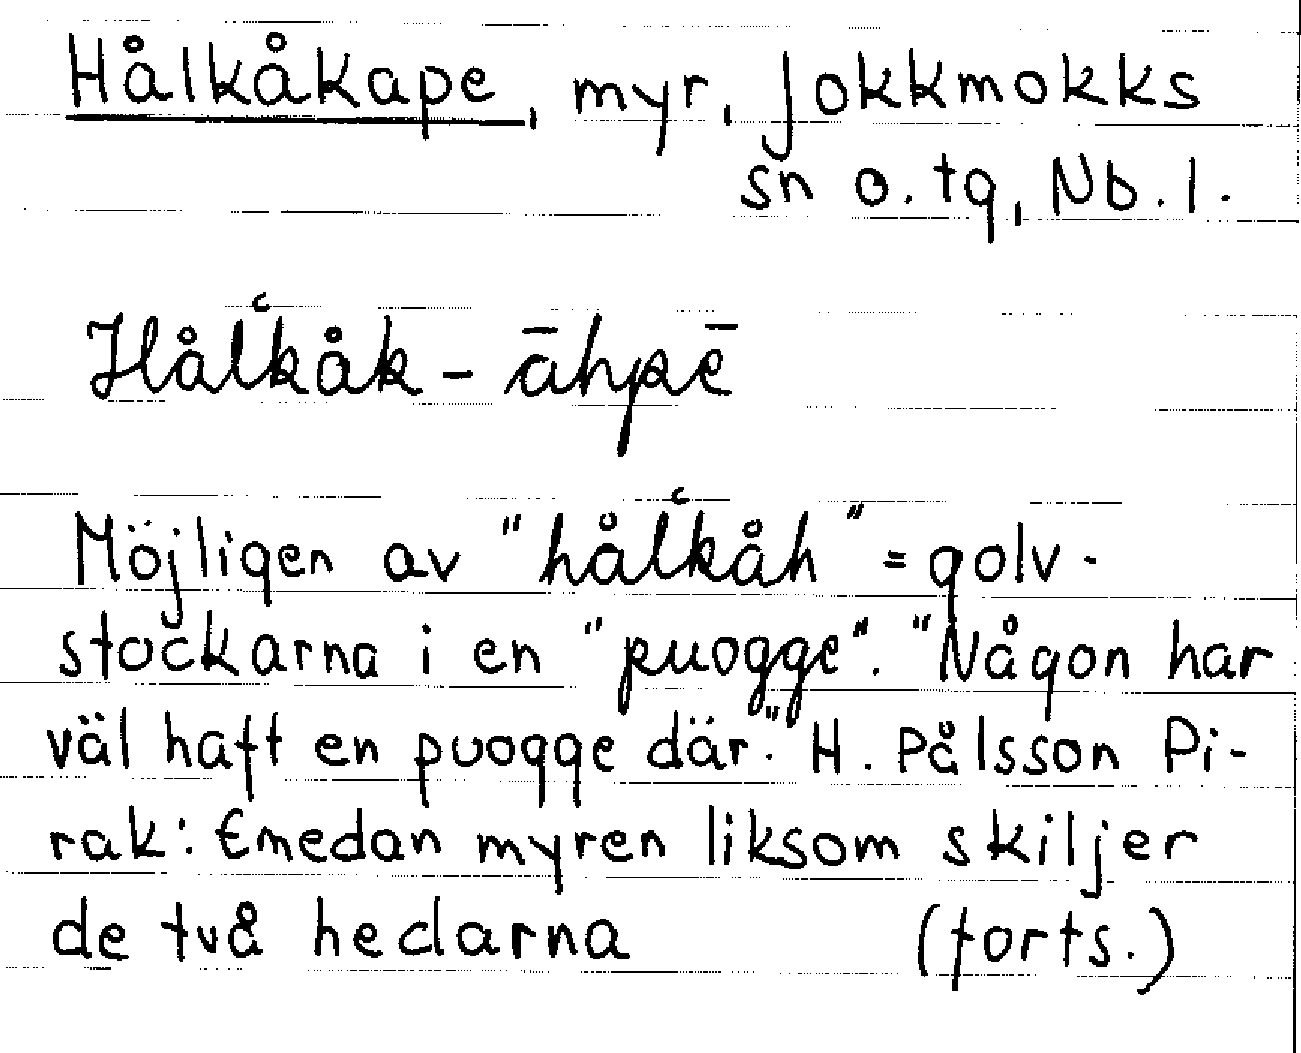 Hålkåkape, myr, Jokkmokks
sn o. tg, Nb. l.
Hålʿkåk - āhpē
Möjligen av "hålʿkåh" = golv-
stockarna i en "puogge". "Någon har
väl haft en puogge där." H. Pålsson Pi-
rak: Emedan myren liksom skiljer
de två hedarna (forts.)